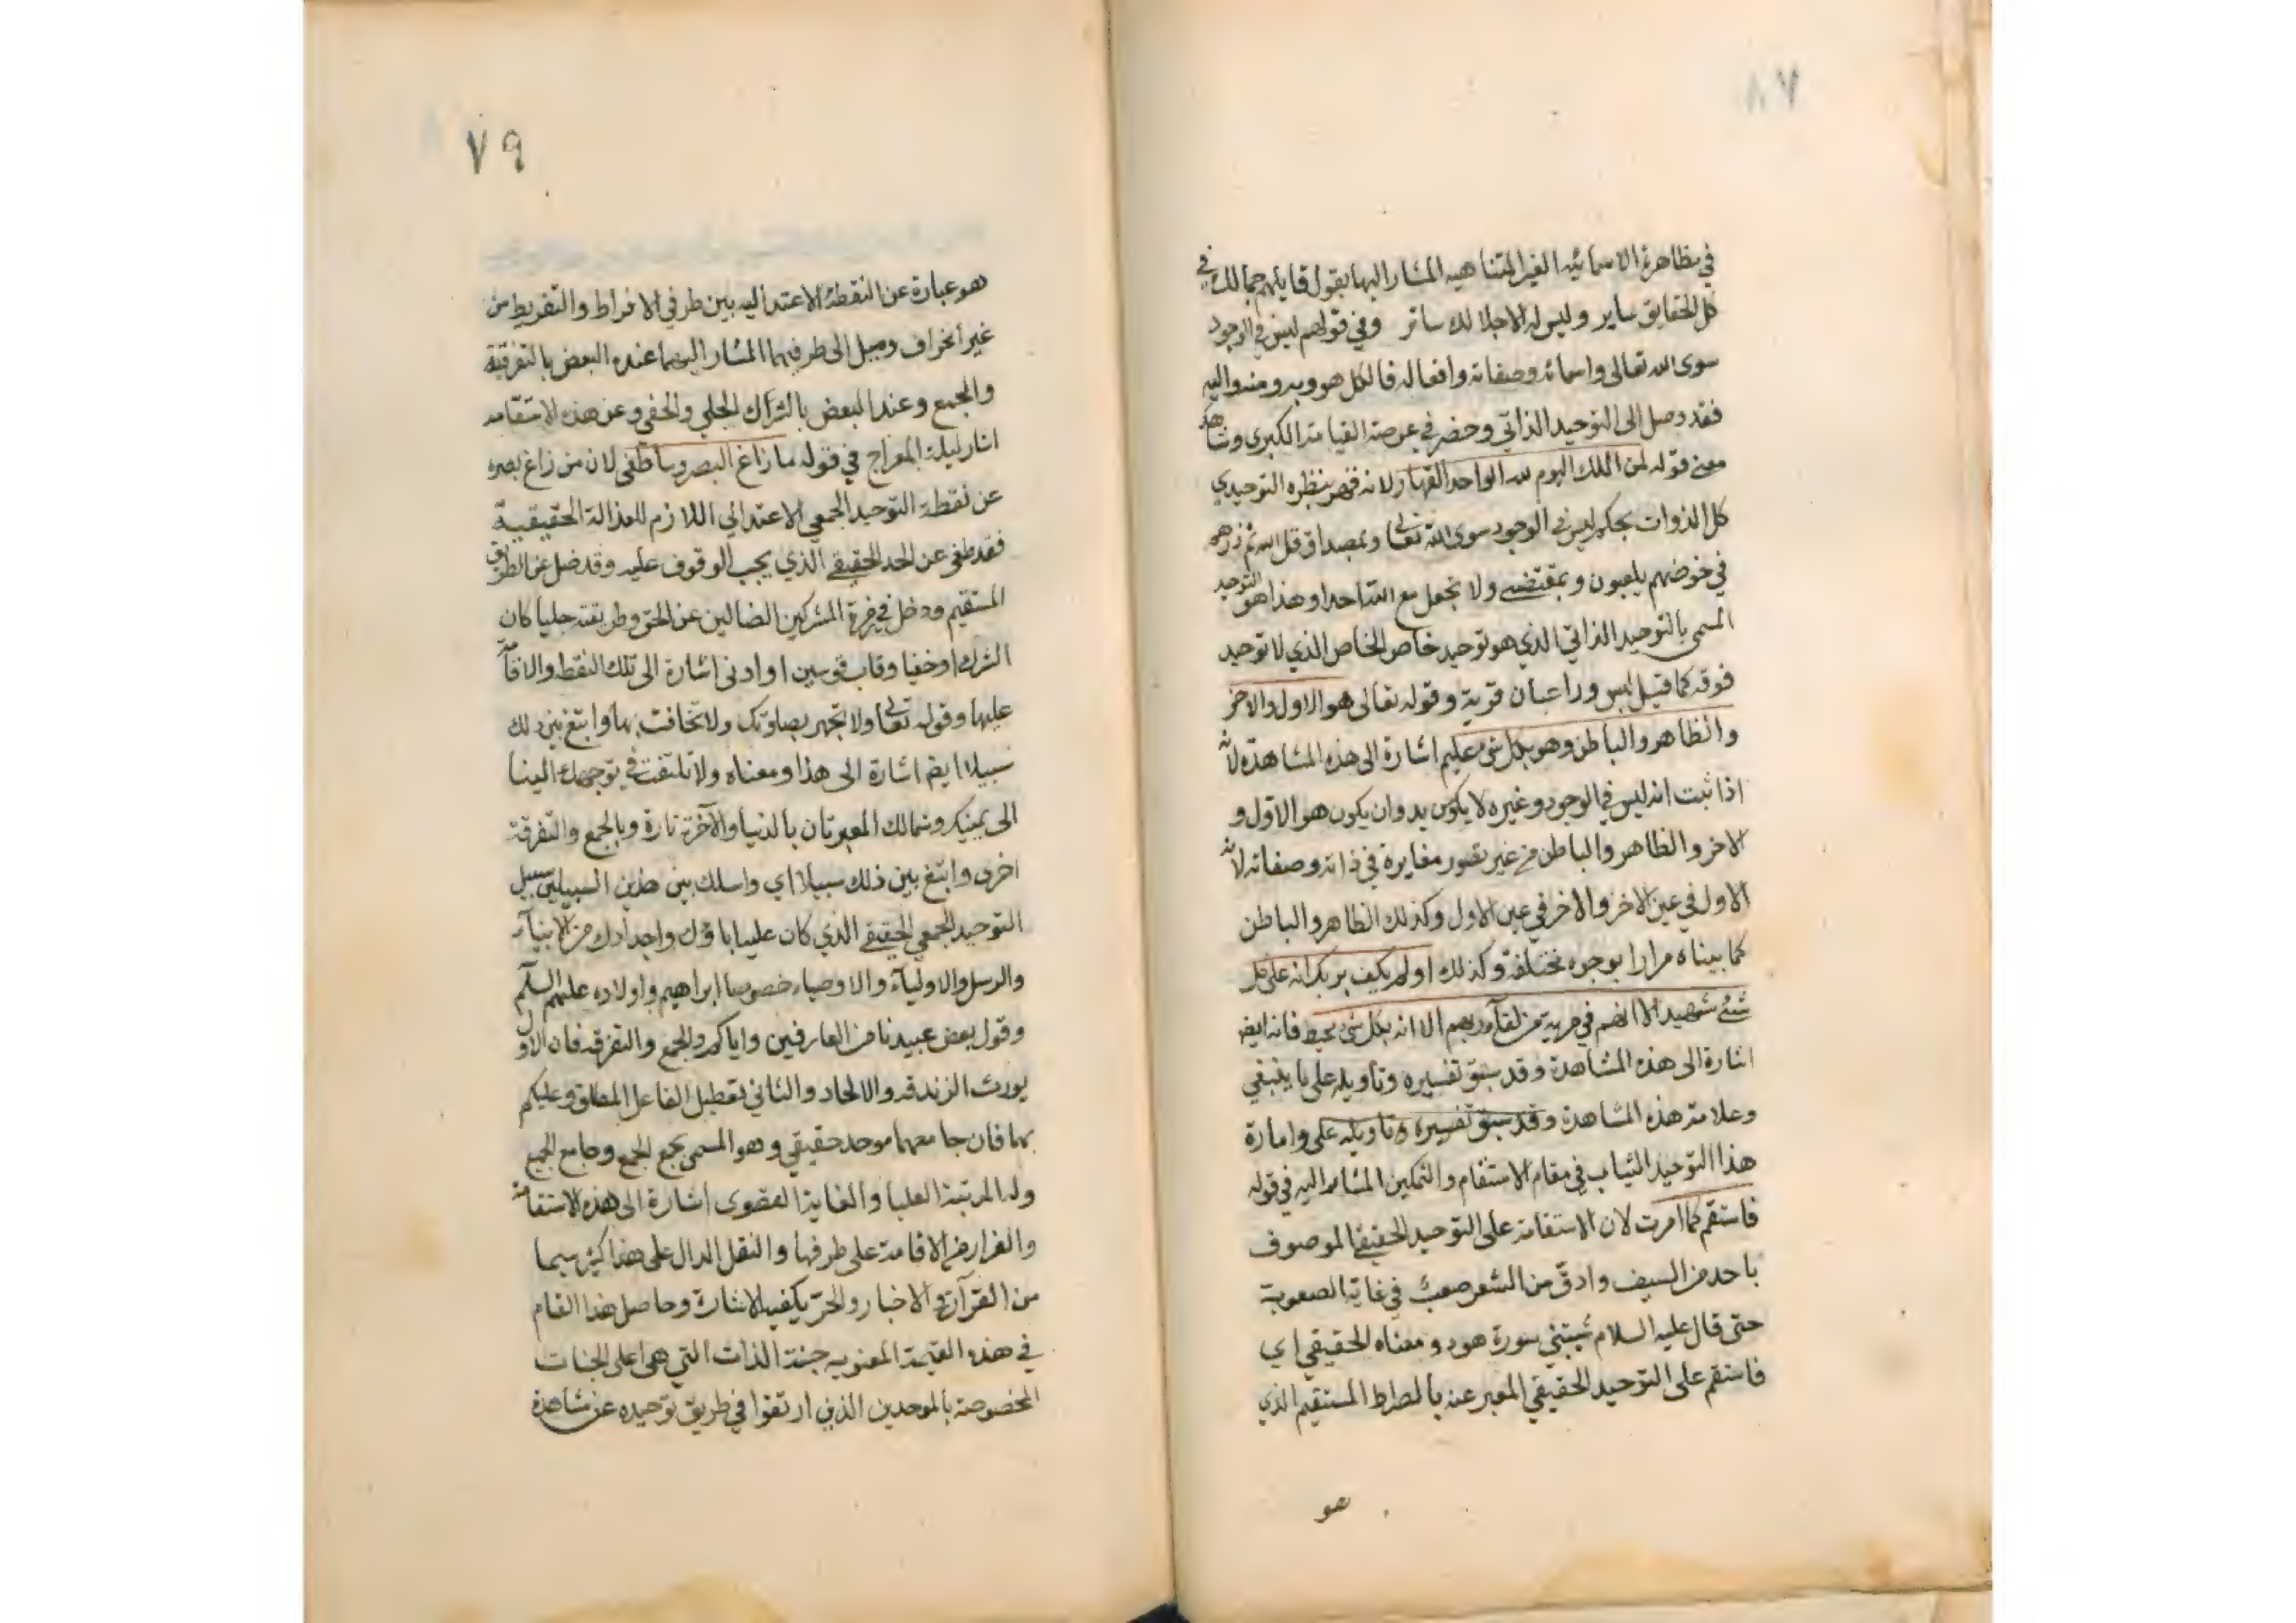 ٨٧
في مظاهره الاسمائيه الغير المتناهيه المشار اليها بقول قايلهم جمالك في
كل الحقايق ساير وليس له الا جلالك ساتر وفي قولهم ليس في الوجود
سوى الله تعالى واسمائه وصفاته وافعاله فالكل هو وبه ومنه واليه
فقد وصل الى التوحيد الذاتي وحضر في عرصة القيامة الكبرى وشاهد
معنى قوله لمن الملك اليوم لله الواحد القهار لانه قهر بنظره التوحيدي
كل الذوات بحكم ليس في الوجود سوى الله تعالى وبمصداق قل الله ثم ذرهم
في خوضهم يلعبون وبمقتضى ولا تجعل مع الله احدا وهذا هو التوحيد
المسمى بالتوحيد الذاتي الذي هو توحيد خاص الخاص الذي لا توحيد
فوقه كما قيل ليس ورا عبادان قرية وقوله تعالى هو الاول والاخر
والظاهر والباطن وهو بكل شئ عليم اشارة الى هذه المشاهدة لانه
اذا ثبت انه ليس في الوجود وغيره لا يكون بد وان يكون هو الاول و
الاخر والظاهر والباطن من غير تصور مغايرة في ذاته وصفاته لانه
الاول في عين الاخر والاخر في عين الاول وكذلك الظاهر والباطن
كما بيناه مرارا بوجوه مختلفة وكذلك اولم يكف بربك انه على كل
شئ شهيد الا انهم في مرية من لقآء ربهم الا انه بكل شئ محيط فانه ايضه
اشارة الى هذه المشاهدة وقد سبق تفسيره وتاويله على ما ينبغي
وعلامة هذه المشاهدة وقد سبق تفسيره وتاويله على وامارة
هذا التوحيد الثبات في مقام الاستقام والتمكين المشار اليه في قوله
فاستقم كما امرت لان الاستقامة على التوحيد الحقيقي الموصوف
باحد من السيف وادق من الشعر صعب في غاية الصعوبة
حتى قال عليه السلام شيبتني سورة هود ومعناه الحقيقي اي
فاستقم على التوحيد الحقيقي المعبر عنه بالصراط المستقيم الذي
هو
٧٩
هو عبارة عن النقطة الاعتداليه بين طرفي الافراط والتفريط من
غير انحراف وميل الى طرفيهما المشار اليهما عند البعض بالتفرقة
والجمع وعند البعض بالشرك الجلي والخفي وعن هذه الاستقامه
اشار ليلة المعراج في قوله ما زاغ البصر وما طغى لان من زاغ بصره
عن نقطة التوحيد الجمعي الاعتدالي اللازم للعدالة الحقيقية
فقد طغى عن الحد الحقيقي الذي يجب الوقوف عليه وقد ضل عن الطريق
المستقيم ودخل في فرقة المشركين الضالين عن الحق وطريقته جليا كان
الشرك او خفيا وقاب قوسين او ادنى اشارة الى تلك النقطه والاقامة
عليها وقوله تعالى ولا تجهر بصلوتك ولا تخافت بها وابتغ بين ذلك
سبيلا ايضه اشارة الى هذا ومعناه ولا تلتفت في توجهك الينا
الى يمينك وشمالك المعبرتان بالدنيا والآخرة تارة وبالجمع والتفرقة
اخرى وابتغ بين ذلك سبيلا اي واسلك بين هذين السبيلين سبيل
التوحيد الجمعي الحقيقي الذي كان عليه اباؤك واجدادك من الانبيآء
والرسل والاوليآء والاوصياء خصوصا ابراهيم واولاده عليهم السلم
وقول بعض عبيدنا من العارفين واياكم والجمع والتفرقه فان الاول
يورث الزندقه والالحاد والثاني تعطيل الفاعل المطلق وعليكم
بهما فان جامعهما موحد حقيقي وهو المسمى بجمع الجمع وجامع الجمع
وله المرتبة العليا والغاية القصوى اشارة الى هذه الاستقامة
والفرار من الاقامة على طرفيها والنقل الدال على هذا كثير سيما
من القرآن والاخبار والحر يكفيه الاشارة وحاصل هذا المقام
في هذه القيمة المعنويه جنة الذات التي هي اعلى الجنات
المخصوصة بالموحدين الذين ارتقوا في طريق توحيده عن مشاهدة